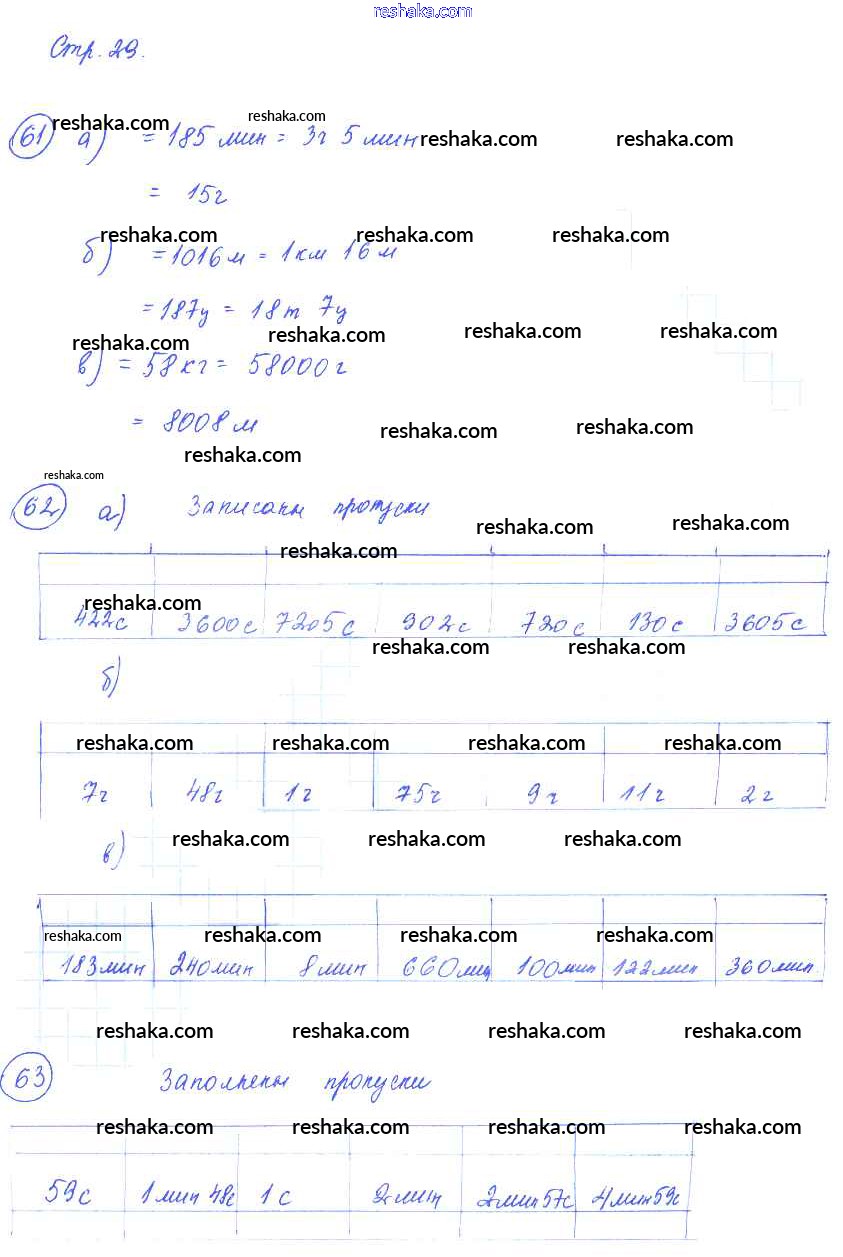 reshaka.com
Стр. 29.
reshaka.com reshaka.com
61 а) = 185 мин = 3ч 5 мин reshaka.com reshaka.com
= 15ч
reshaka.com reshaka.com reshaka.com
б) = 1016 м = 1 км 16 м
= 187ц = 18т 7ц
reshaka.com reshaka.com reshaka.com reshaka.com
в) = 58 кг = 58000 г
= 8008 м
reshaka.com reshaka.com reshaka.com
reshaka.com
62 а) Записаны пропуски
reshaka.com reshaka.com
reshaka.com
reshaka.com
422с 3600с 7205с 902с 720с 130с 3605с
reshaka.com reshaka.com
б)
reshaka.com reshaka.com reshaka.com reshaka.com
7ч 48ч 1ч 75ч 9ч 11ч 2ч
reshaka.com reshaka.com reshaka.com
в)
reshaka.com reshaka.com reshaka.com reshaka.com
183мин 240мин 8мин 660мин 100мин 122мин 360мин.
reshaka.com reshaka.com reshaka.com reshaka.com
63 Заполнены пропуски
reshaka.com reshaka.com reshaka.com reshaka.com
59с 1мин 48с 1с 2мин 2мин57с 4мин59с